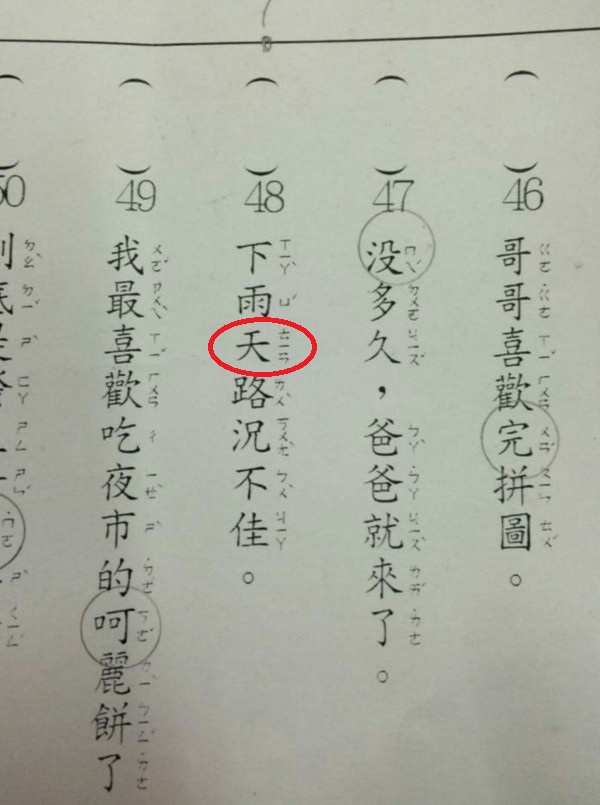 （ ）46 哥哥喜歡完拼圖。
（ ）47 没多久，爸爸就來了。
（ ）48 下雨天路況不佳。
（ ）49 我最喜歡吃夜市的呵麗餅了